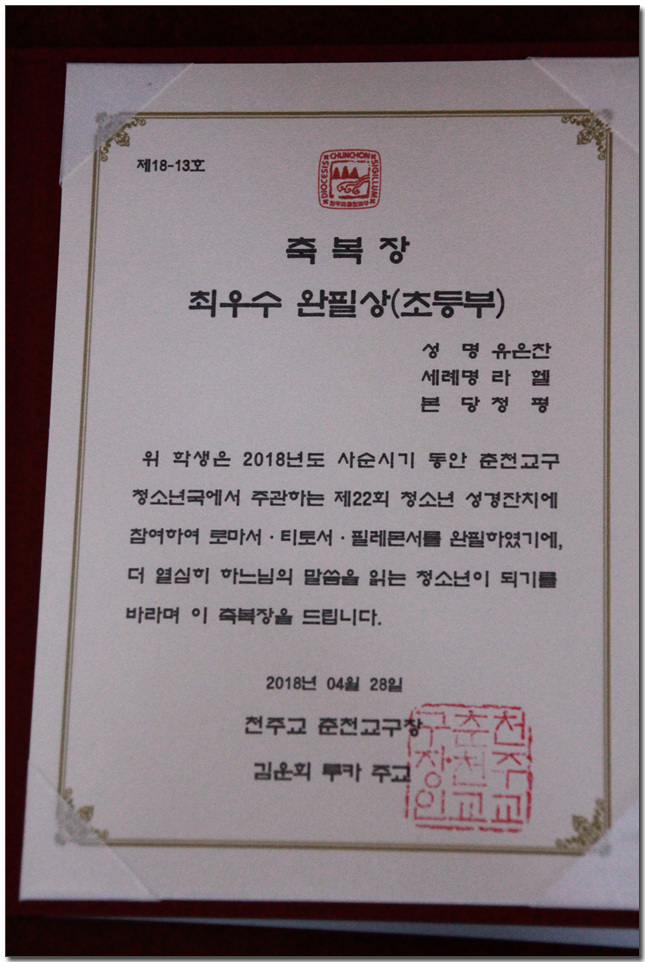 제18-13호
DIOCESIS CHUNCHON SIGILLUM
축복장
최우수 완필상(초등부)
성 명 유은찬
세례명 라 헬
본 당 청 평
위 학생은 2018년도 사순시기 동안 춘천교구
청소년국에서 주관하는 제22회 청소년 성경잔치에
참여하여 로마서·티토서·필레몬서를 완필하였기에,
더 열심히 하느님의 말씀을 읽는 청소년이 되기를
바라며 이 축복장을 드립니다.
2018년 04월 28일
천주교 춘천교구장
김운회 루카 주교
천주교
춘천교
구장인